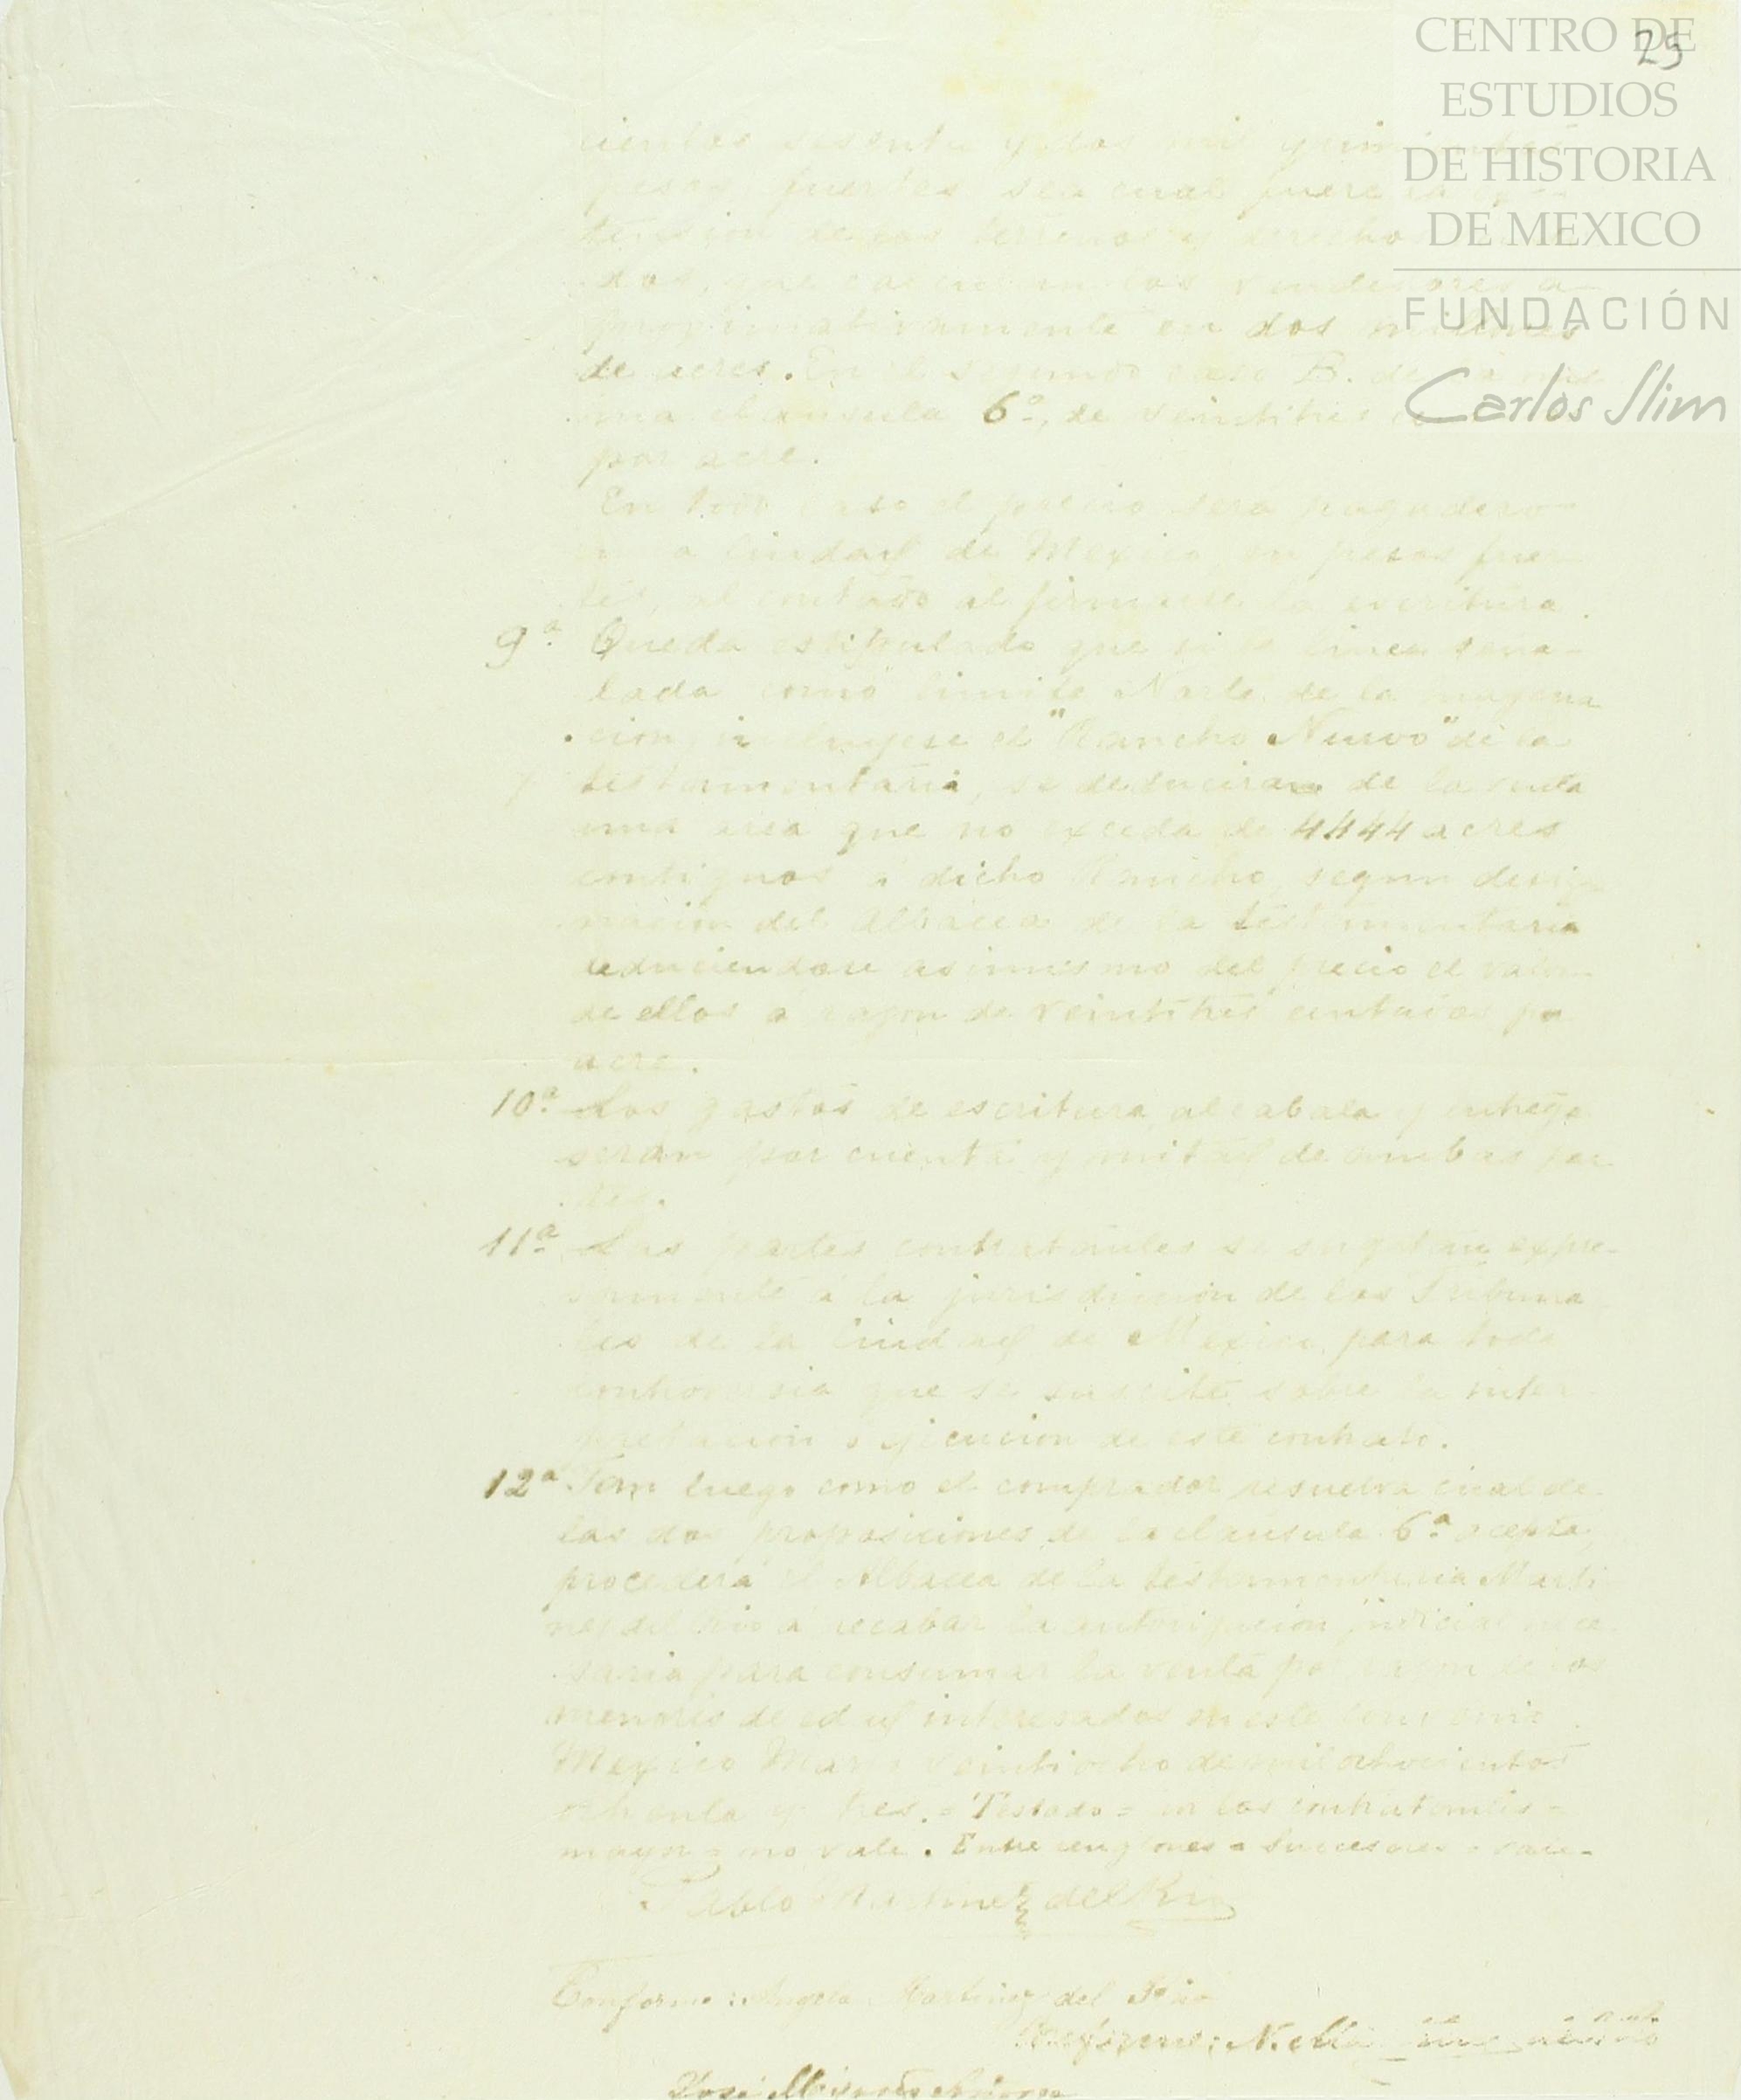 CENTRO DE
ESTUDIOS
DE HISTORIA
DE MEXICO
FUNDACIÓN
Carlos Slim
25
cientos sesenta y dos mil
pesos fuertes sea cual fuere la ex-
tension de los terrenos y derechos
dos, que calculan los vendedores a-
proximativamente en dos millones
de acres. En el segundo caso B. de la mis
ma clausula 6ª, de veintitres
por acre.
En todo caso el precio será pagadero
en la Ciudad de Mexico, en pesos fuer
tes, al contado al firmarse la escritura.
9ª Queda estipulado que si la linea seña-
lada como limite Norte de la
cion, incluyese el "Rancho Nuevo" de la
testamentaria, se deduciran de la venta
una area que no exceda de 4444 acres
contiguos á dicho Rancho, segun desig-
nacion del Albacea de la testamentaria
deduciendose asimismo del precio el valor
de ellos á razon de veintitres centavos por
acre.
10ª Los gastos de escritura, alcabala y entrega
serán por cuenta y mitad de ambas par
tes.
11ª Las partes contratantes se sugetan expre-
samente á la jurisdiccion de los Tribuna
les de la Ciudad de Mexico, para toda
controversia que se suscite sobre la inter
pretacion o ejecucion de este contrato.
12ª Tan luego como el comprador resuelva cual de
las dos proposiciones de la clausula 6ª acepta,
procederá el Albacea de la testamentaria Marti
nez del Rio á recabar la autorizacion judicial nece
saria para consumar la venta por razon de los
menores de edad interesados en este convenio.
Mexico Marzo veintiocho de mil ochocientos
ochenta y tres. = Testado = en los contratantes =
mayor = no vale. Entre renglones = sucesores = vale-
Pablo Martinez del Rio
Conforme: Angela Martinez del Rio
Conforme:
José